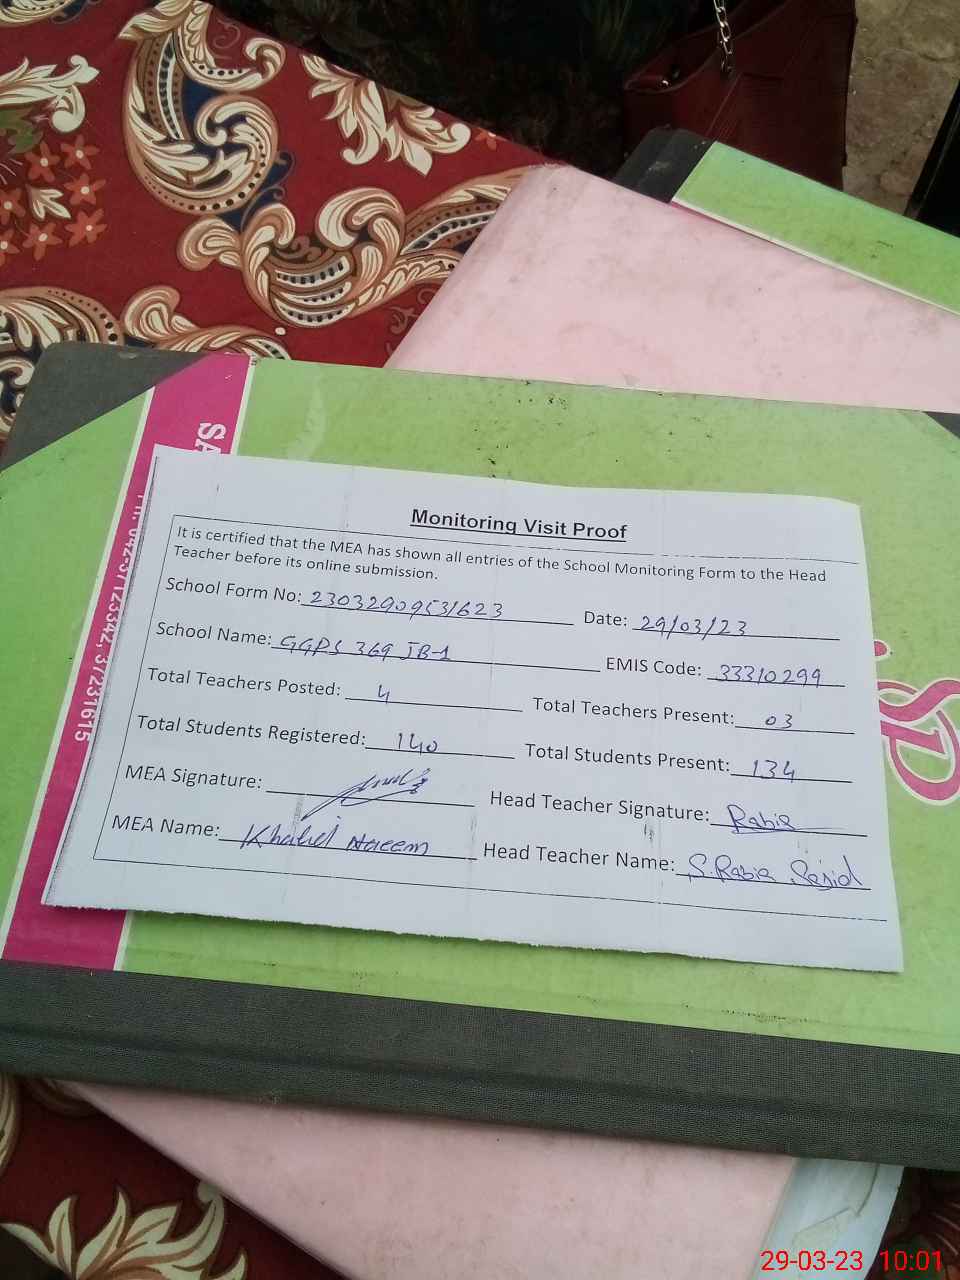 SA
PH: 042-37123342, 37231615
SP
Monitoring Visit Proof
It is certified that the MEA has shown all entries of the School Monitoring Form to the Head
Teacher before its online submission.
School Form No: 23032909531623 Date: 29/03/23
School Name: GGPS 369 JB-1 EMIS Code: 33310299
Total Teachers Posted: 4 Total Teachers Present: 03
Total Students Registered: 140 Total Students Present: 134
MEA Signature: Head Teacher Signature: Rabia
MEA Name: Khalid Naeem Head Teacher Name: S.Rabia Sajid
29-03-23 10:01